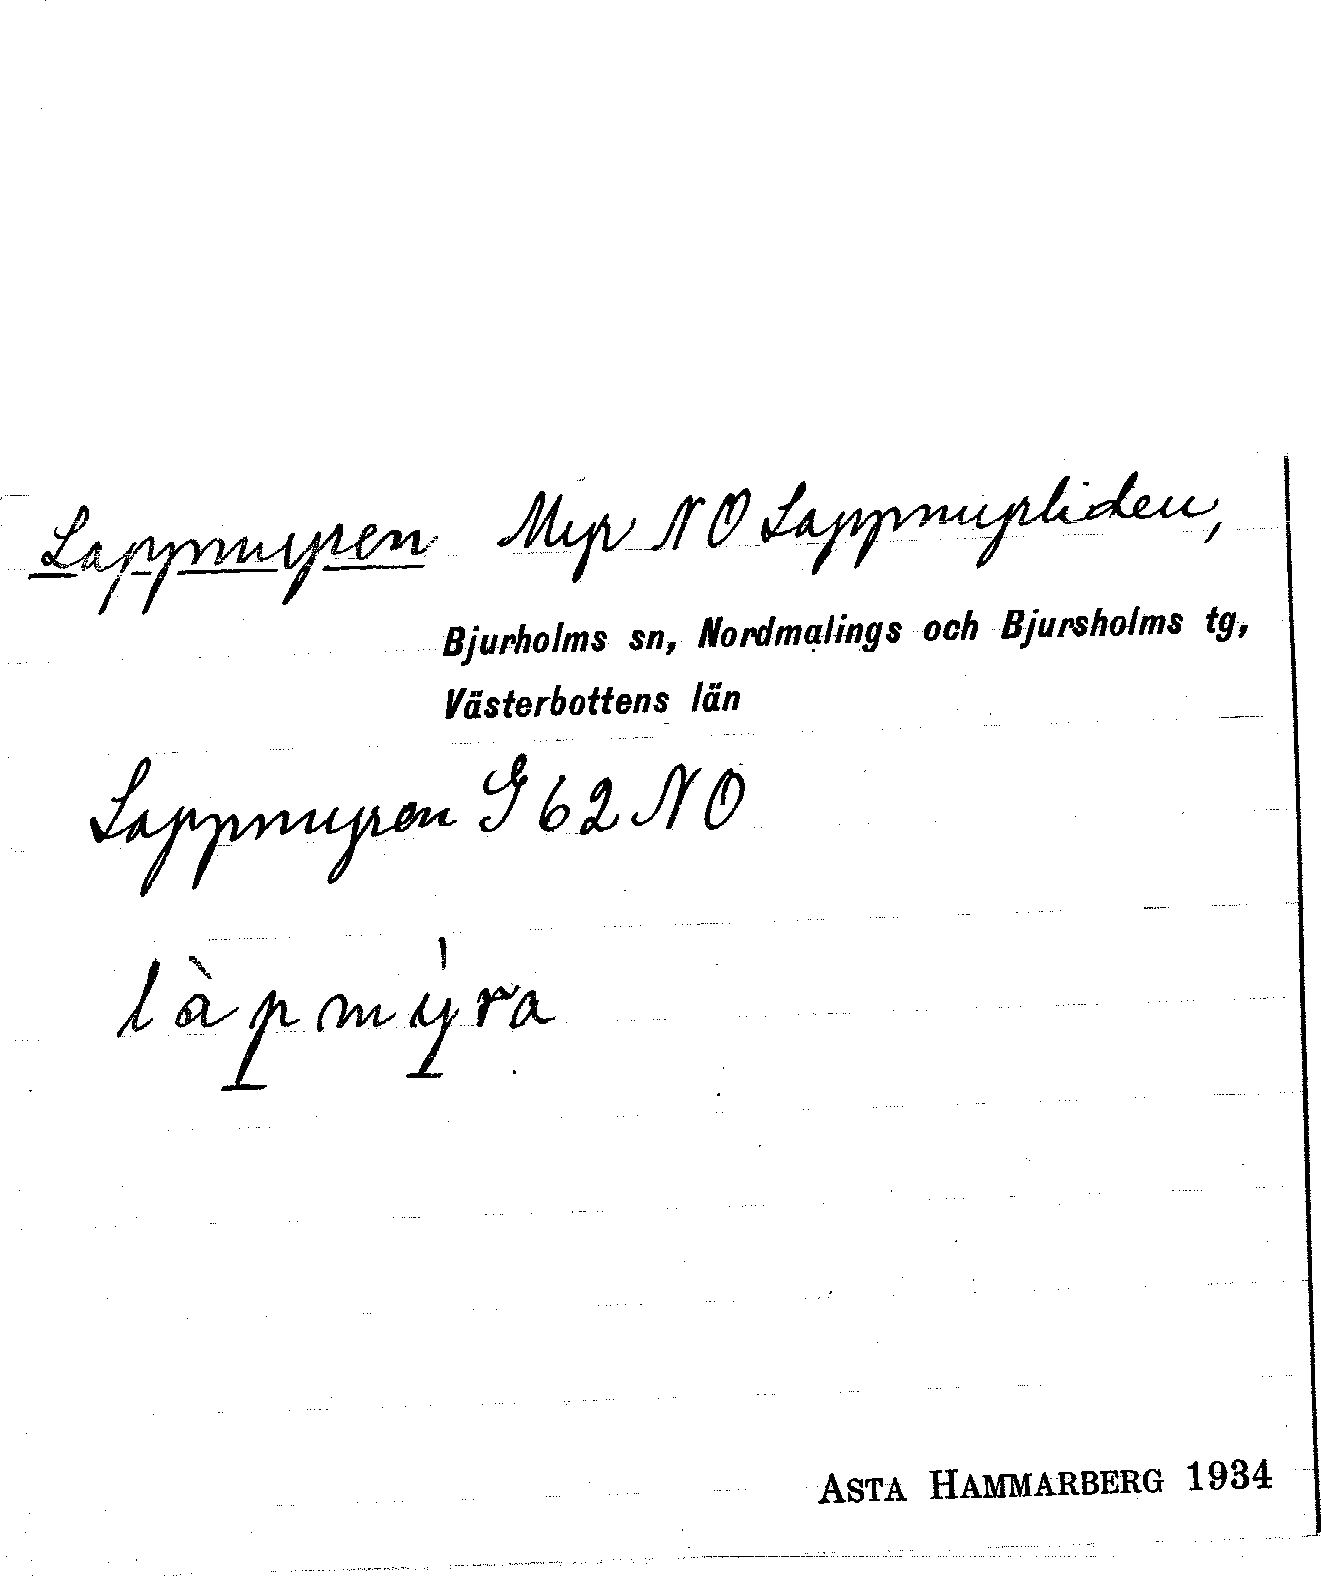 Lappmyren Myr NO Lappmyrliden,
Bjurholms sn, Nordmalings och Bjursholms tg,
Västerbottens län
Lappmyren G 62 NO
làpmýra
ASTA HAMMARBERG 1934